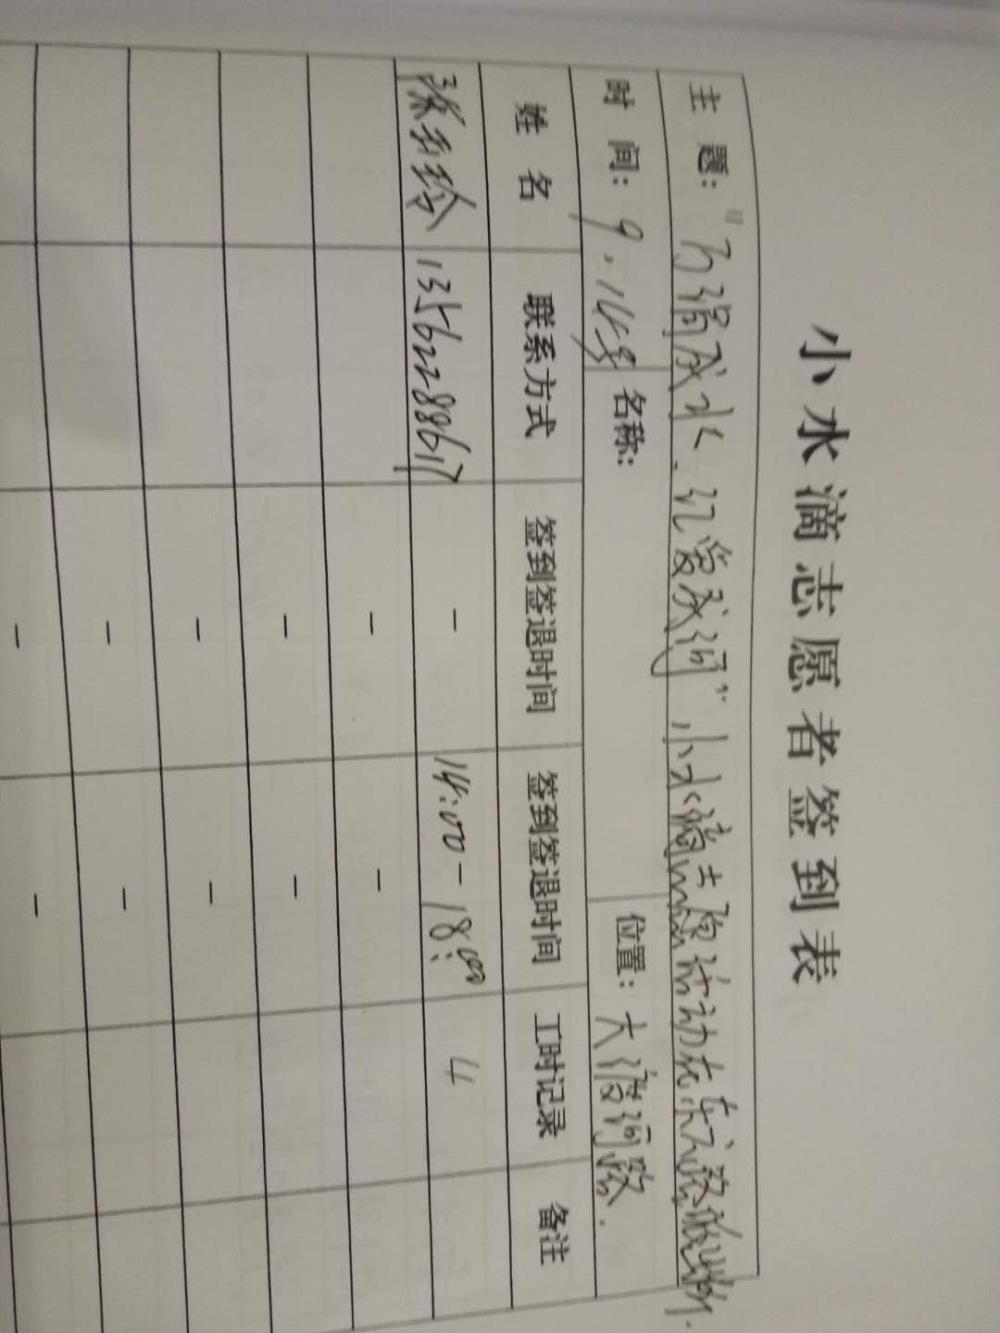 小水滴志愿者签到表
主 题:"万滴成水、汇爱成河",小水滴志愿活动
时 间: 9.14号 名称: 位置: 大渡河路.
姓 名 联系方式 签到签退时间 签到签退时间 工时记录 备注
13562288617 - 14:00-18:00 4
- -
- -
- -
- -
- -